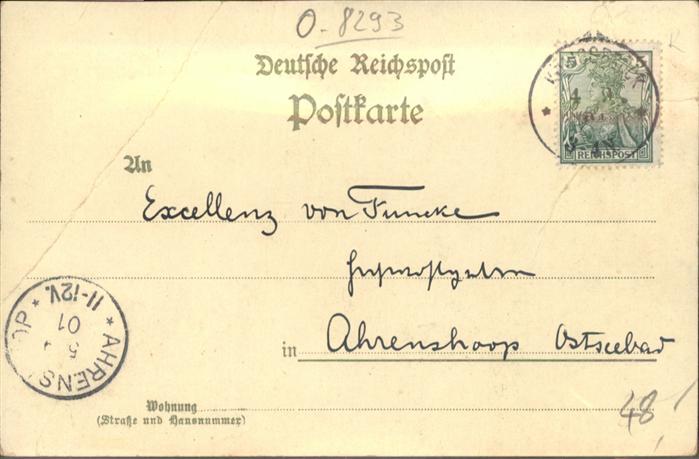 O-8293
Deutsche Reichspost
Postkarte
5 5
REICHSPOST
An
Excellenz von Funcke
in Ahrenshoop Ostseebad
AHRENS
11-12V.
5
01
Wohnung
(Straße und Hausnummer)
48